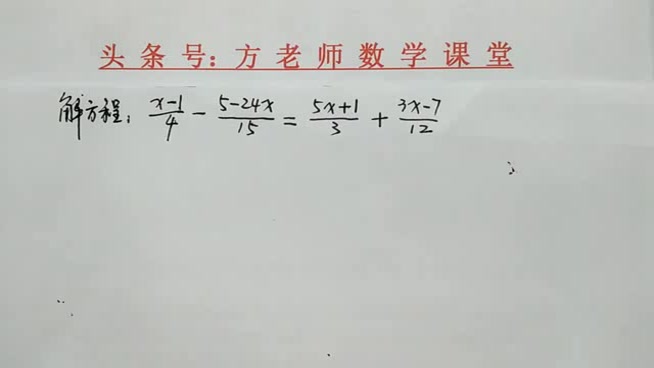 头条号：方老师数学课堂
解方程：(x-1)/4 - (5-24x)/15 = (5x+1)/3 + (3x-7)/12